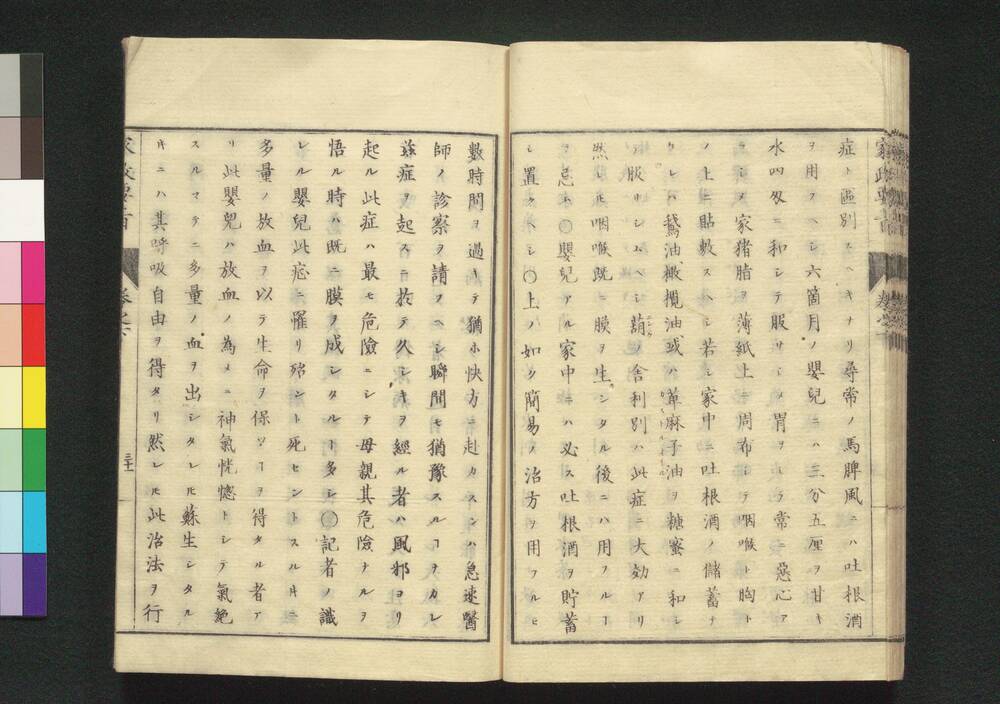 症ト區別スヘキナリ尋常ノ馬脾風ニハ吐根酒
ヲ用フヘシ六箇月ノ嬰兒ニハ三分五厘ヲ甘キ
水四匁ニ和シテ服サシメ胃ヲシテ常ニ惡心ア
ラシメ家猪脂ヲ薄紙上ニ周布シテ咽喉ト胸ト
ノ上ニ貼敷スヘシ若シ家中ニ吐根酒ノ儲蓄ナ
クレハ鵞油橄欖油或ハ萆麻子油ヲ糖蜜ニ和シ
服サシムヘシ葫ノ舍利別ハ此症ニ大効アリ
然レ𪜈咽喉既ニ膜ヲ生シタル後ニハ用フルヿ
ヲ忌ム〇嬰兒アル家中ニハ必ス吐根酒ヲ貯蓄
シ置クヘシ〇上ノ如ク簡易ノ治方ヲ用フルモ
數時間ヲ過キテ猶ホ快方ニ赴カスンハ急速醫
師ノ診察ヲ請フヘシ瞬間モ猶豫スルヿヲカレ
玆症ヲ起スニ於テ久シキヲ經ル者ハ風邪ヨリ
起ル此症ハ最モ危險ニシテ母親其危險ナルヲ
悟ル時ハ既ニ膜ヲ成シタルヿ多シ〇記者ノ識
レル嬰兒此症ニ罹リ殆ント死セントスル𪜈ニ
多量ノ放血ヲ以テ生命ヲ保ツヿヲ得タル者ア
リ此嬰兒ハ放血ノ為メニ神氣恍惚トシテ氣絶
スルマテニ多量ノ血ヲ出シタレ𪜈蘇生シタル
キニハ其呼吸自由ヲ得タリ然レ𪜈此治法ヲ行
三十一